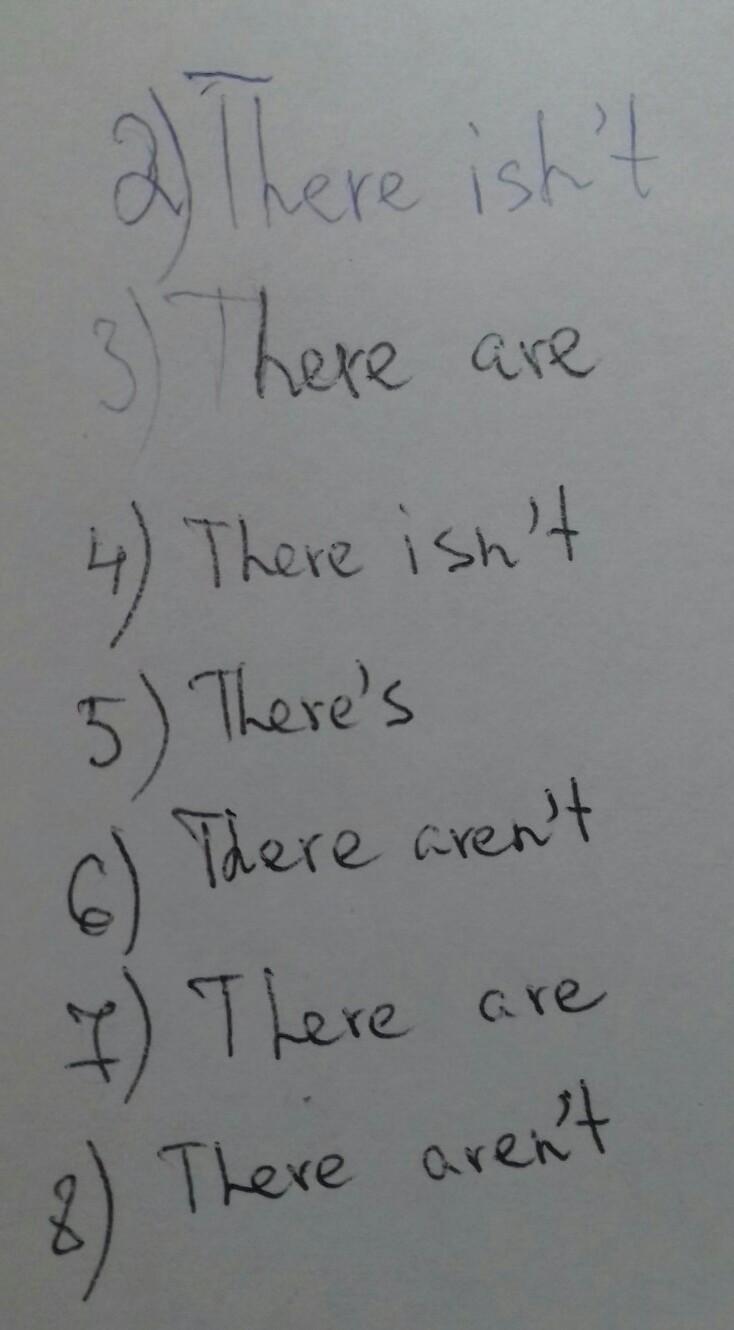 2) There isn't
3) There are
4) There isn't
5) There's
6) There aren't
7) There are
8) There aren't